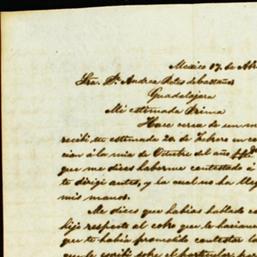 Mexico 17. de Ab
Sra. Da. Andrea
Guadalajara
Mi estimada Prima
Hace cerca de un m
recibí tu estimada 20. de Febro en co
cion á la mia de Octubre del año
que me dices haberme contestado á
te dirigí antes, y la cual no ha lleg
mis manos.
Me dices que habias hablado co
hijo respecto al cobro que le haciamo
que te habia prometido contestar la
que le escribí sobre el particular; por